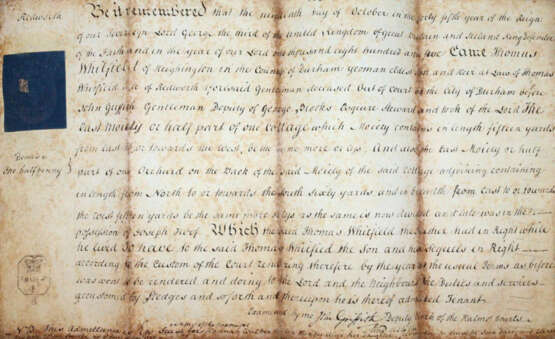 Redworth
Be it remembered that the nineteenth day of October in the forty fifth year of the Reign
of our Sovereign Lord George the third of the united Kingdom of great Britain and Ireland King Defender
of the Faith and in the year of our Lord one thousand eight hundred and five Came Thomas
Whitfield of Heighington in the County of Durham yeoman eldest son and Heir at Law of Thomas
Whitfield late of Redworth aforesaid Gentleman deceased Out of Court at the City of Durham before
John Griffith Gentleman Deputy of George Brooks Esquire Steward and took of the Lord The
East Moiety or half part of one Cottage which Moiety contains in length fifteen yards
from East to or towards the West, be the same more or less And also the East Moiety or half
Domini
One halfpenny
part of one Orchard on the Back of the said Moiety of the said Cottage adjoining containing
in length from North to or towards the South Sixty yards and in breadth from East to or towards
the West fifteen yards be the same more or less as the same is now divided and late was in the
possession of Joseph Which the said Thomas Whitfield the Father had in Right while
he lived To have to the said Thomas Whitfield the Son and his Sequels in Right
according to the Custom of the Court rendering therefore by the year at the usual Terms as before
was wont to be rendered and doing to the Lord and the Neighbours the Duties and Services
accustomed by Pledges and so forth and thereupon he is thereof admitted Tenant
Examined by me Jno Griffith Deputy of the Halmot Courts